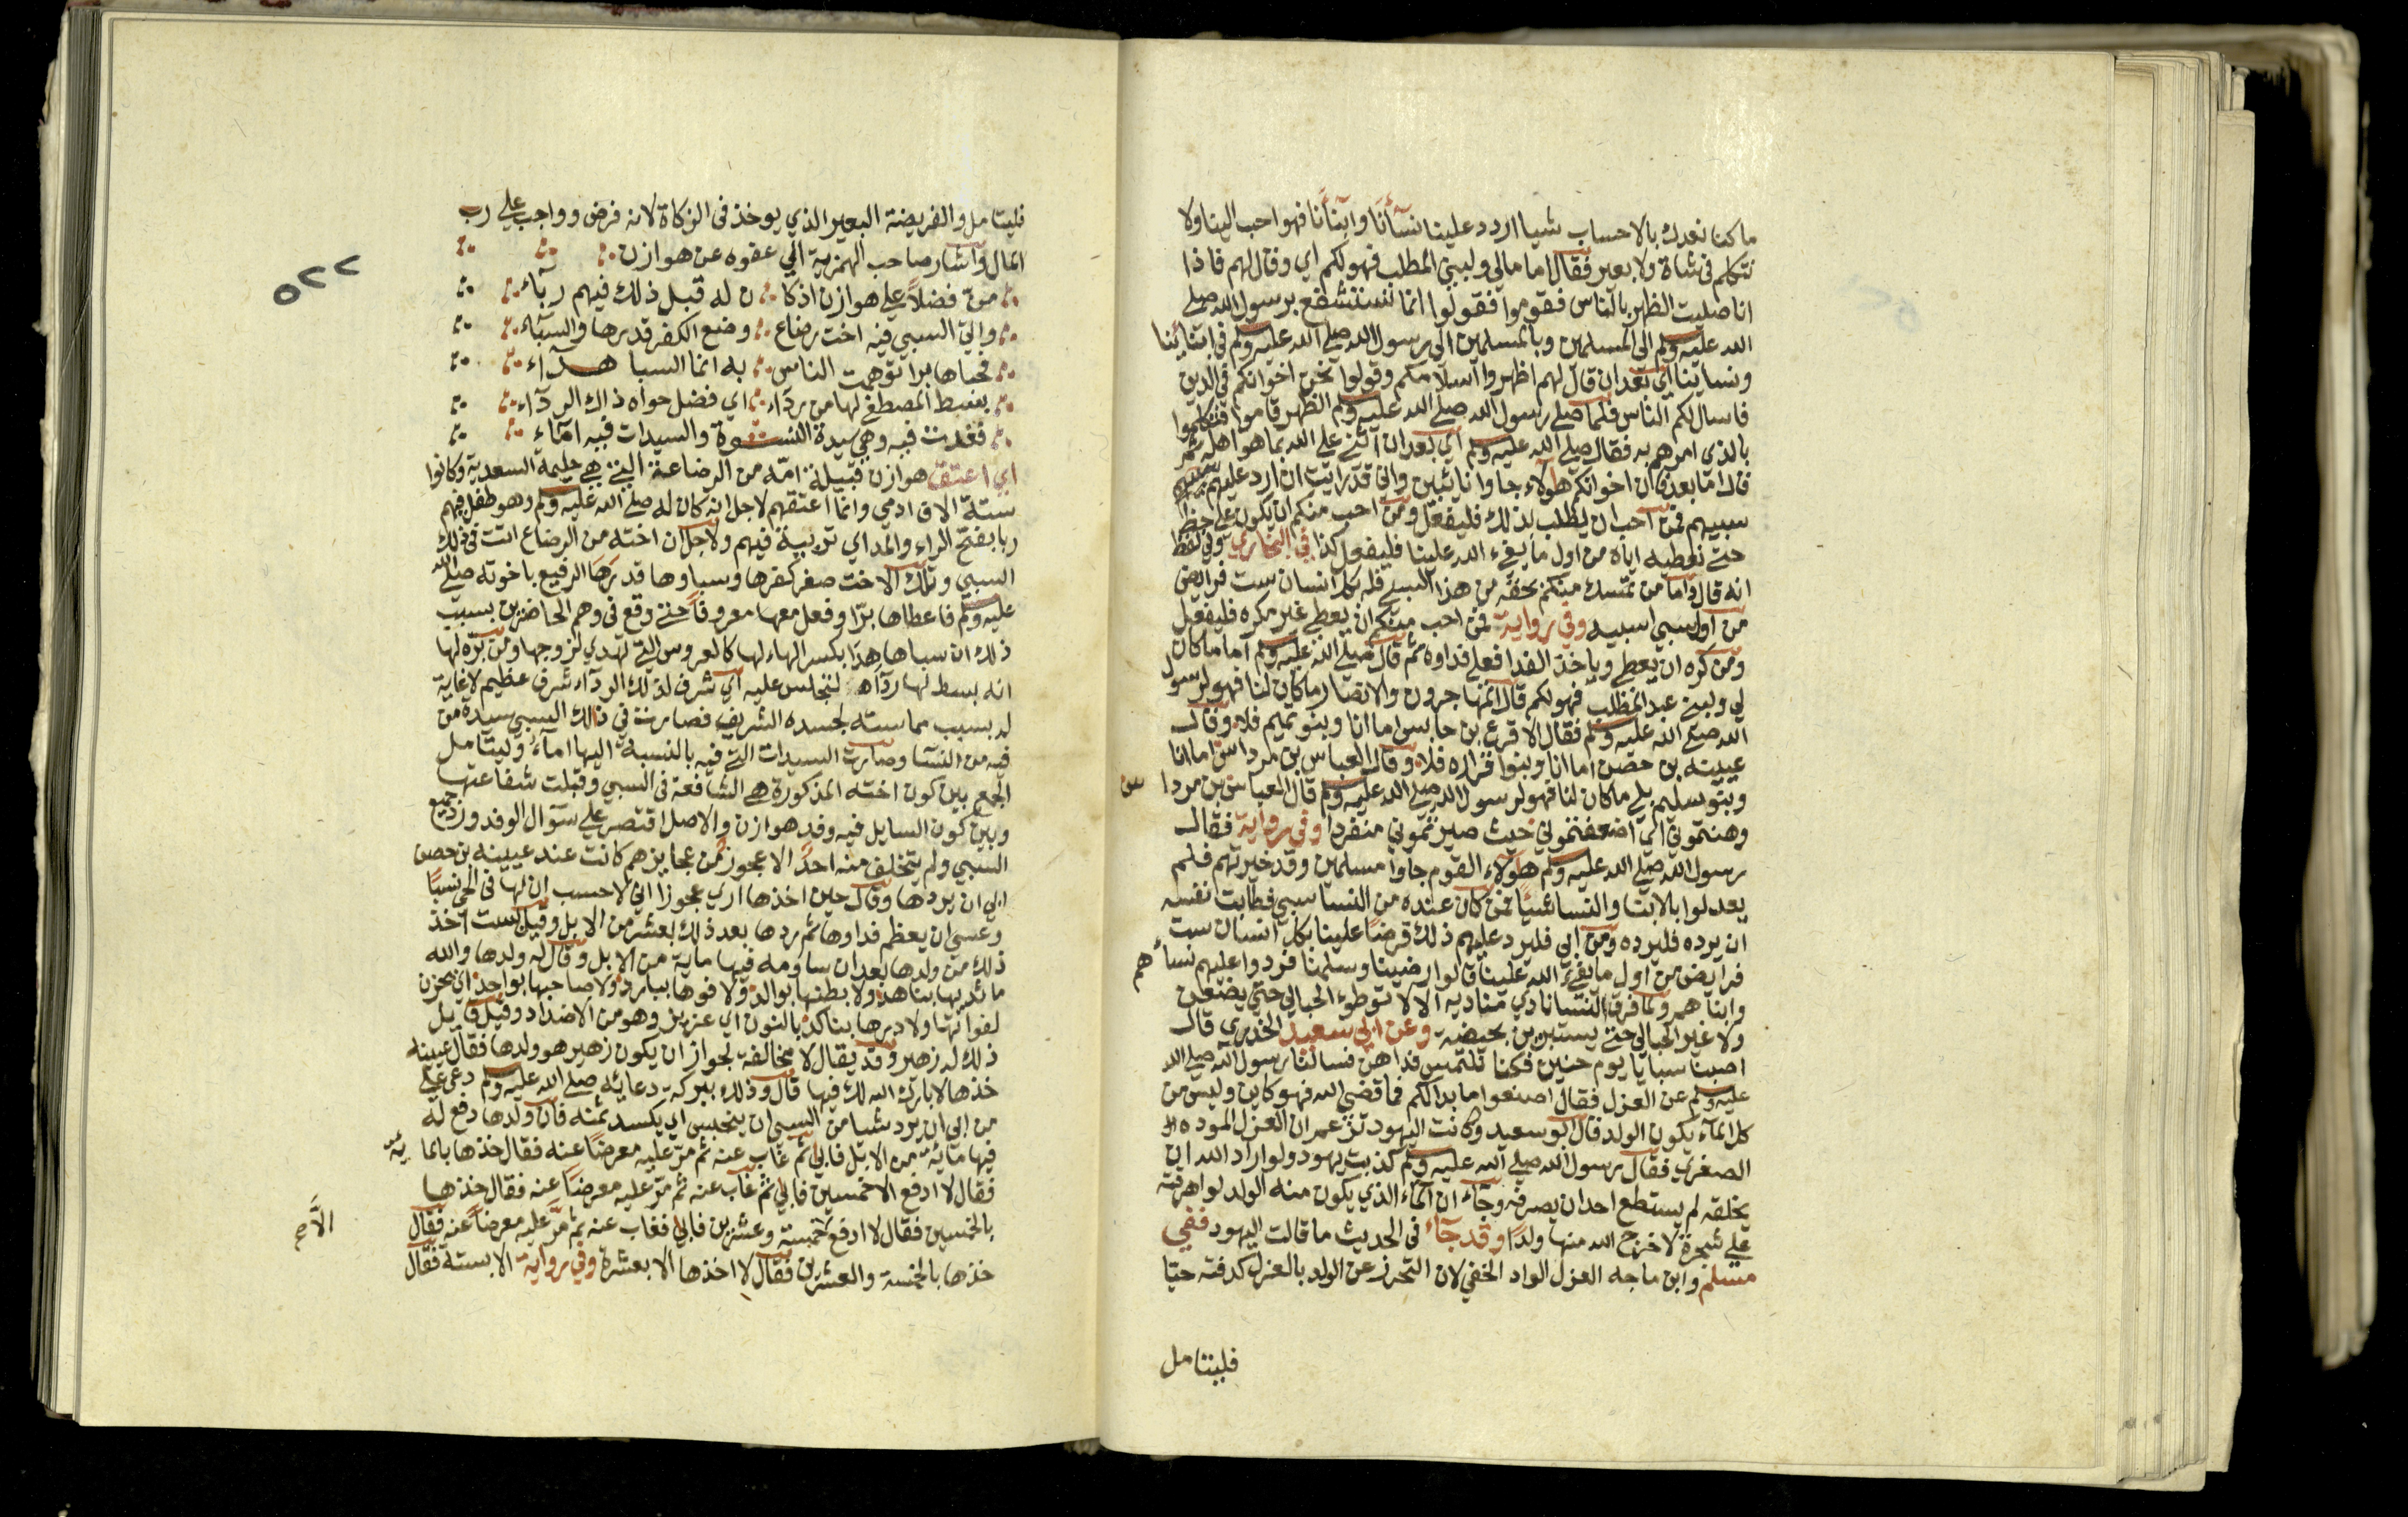 ما كنا نعدك بالاحساب شيا اردد علينا نسآنا وابنآنا فهو احب الينا ولا
نتكلم فى شاة ولا بعير فقال اما مالي ولبني المطلب فهو لكم اي وقال لهم فاذا
انا صليت الظهر بالناس فقوموا فقولوا انما نستشفع برسول الله صلى
الله عليه وسلم الى المسلمين وبالمسلمين الى رسول الله صلى الله عليه وسلم في ابنائنا
ونسائنا اي بعد ان قال لهم اظهروا اسلامكم وقولوا نحن اخوانكم فى الدين
فاسال لكم الناس فلما صلى رسول الله صلى الله عليه وسلم الظهر قاموا فتكلموا
بالذي امرهم به فقال صلى الله عليه وسلم اي بعد ان اثني على الله بما هو اهله ثم
قال اما بعد فان اخوانكم هولآء جاوا تائبين واني قد رايت ان ارد عليهم
سبيهم فمن احب ان يطلب بذلك فليفعل ومن احب منكم ان يكون على حظه
حتى نعطيه اياه من اول ما يفيء الله علينا فليفعل كذا في البخاري وفي لفظ
انه قال واما من تمسك منكم بحقه من هذا السبي فله بكل انسان ست فرايض
من اول سبي اسبيه وفي رواية فمن احب منكم ان يعطي غير مكره فليفعل
ومن كره ان يعطي وياخذ الفدا فعلي فداوه ثم قال صلى الله عليه وسلم اما ما كان
لي ولبني عبد المطلب فهو لكم قال المهاجرون والانصار ما كان لنا فهو لرسول
الله صلى الله عليه وسلم فقال الاقرع بن حابس اما انا وبنو تميم فلا وقال
عيينه بن حصن اما انا وبنوا فزاره فلا وقال العباس بن مرداس اما انا
وبنو سليم بلى ما كان لنا فهو لرسول الله صلى الله عليه وسلم قال العباس بن مرداس
وهنتموني اي اضعفتموني حيث صيرتموني منفردا وفي رواية فقال
رسول الله صلى الله عليه وسلم هولاء القوم جاوا مسلمين وقد خيرتهم فلم
يعدلوا بالابنا والنسا شيًا فمن كان عنده من النسا سبي فطابت نفسه
ان يرده فليرده ومن ابي فليرد عليهم ذلك قرضا علينا بكل انسان ست
فرايض من اول ما يفيء الله علينا قالوا رضينا وسلمنا فردوا عليهم نسآهم
وابناهم ولما فرق النسا نادي مناديه الا لا توطوء الحبالي حتى يضعن
ولا غير الحبالي حتى يستبرين بحيضة وعن ابي سعيد الخدري قال
اصبنا سبايا يوم حنين فكنا نلتمس فداهن فسالنا رسول الله صلى الله
عليه وسلم عن العزل فقال اصنعوا ما بدا لكم فما قضي الله فهو كاين وليس من
كل المآء يكون الولد قال ابو سعيد وكانت اليهود تزعم ان العزل الموده
الصغري فقال رسول الله صلى الله عليه وسلم كذبت يهود ولو اراد الله ان
يخلقه لم يستطع احد ان يصرفه وجآء ان المآء الذي يكون منه الولد لو اهرقته
على شجرة لاخرج الله منها ولدًا وقد جآء فى الحديث ما قالت اليهود ففي
مسلم وابن ماجه العزل الواد الخفي لان التحرز عن الولد بالعزل كدفنه حيًا
فليتامل
٥٢٢
فليتامل والفريضة البعير الذي يوخذ فى الزكاة لانه فرض وواجب على رب
المال واشار صاحب الهمزية الى عفوه عن هوازن
من فضلاً على هوازن اذ كا ن له قبل ذلك فيهم ربآء
واتي السبي فيه اخت رضاع وضع الكفر قدرها والسبآء
فحباها برا توهمت الناس به انما السبا هدآء
بسط المصطفى لها من ردآء اي فضل حواه ذاك الردآء
فغدت فيه وهي سيدة النسوة والسيدات فيه امآء
اي اعتق هوازن قبيلة امه من الرضاعة التي هي حليمة السعدية وكانوا
ستة الاف ادمي وانما اعتقهم لاجل انه كان له صلى الله عليه وسلم وهو طفل فيهم
ربا بفتح الراء والمد اي تربية فيهم ولاجل ان اخته من الرضاع اتت فى ذلك
السبي وتلك الاخت صغر كفرها وسباوها قدرها الرفيع باخوته صلى الله
عليه وسلم فاعطاها برًا وفعل معها معروفا حتى وقع فى وهم الحاضرين بسبب
ذلك ان سباها هدا بكسر الهاء لها كالعروس التي تهدي لزوجها ومن بره لها
انه بسط لها ردآه لتجلس عليه اي شرف لذلك الردآء شرف عظيم لا غاية
له بسبب مماسته لجسده الشريف فصارت في ذلك السبي سيدة من
فيه من النسآ وصارت السيدات التي فيه بالنسبة اليها امآء وليتامل
الجمع بين كون اخته المذكورة هي الشافعة فى السبي وقبلت شفاعتها
وبين كون السايل فيه وفد هوازن والاصل اقتصر على سؤال الوفد ورد جميع
السبي ولم يتخلف منه احدًا الا عجوز من عجايزهم كانت عند عيينه بن حصن
ابي ان يردها وقال حين اخذها اري عجوزا اني لاحسب ان لها فى الحي نسبًا
وعسي ان يعظم فداوها ثم ردها بعد ذلك بعشر من الابل وقيل بست اخذ
ذلك من ولدها بعد ان ساومه فيها ماية من الابل وقال له ولدها والله
ما ثديها بناهد ولا بطنها بوالد ولا فوها ببارد ولا صاحبها بواجد اي بحزن
لفواتها ولا درها بناكد بالنون اي عزيز وهو من الاضداد وقيل قايل
ذلك له زهير وقد يقال لا مخالفة لجواز ان يكون زهير هو ولدها فقال عيينه
خذها لا بارك الله لك فيها قال وذلك ببركة دعائه صلى الله عليه وسلم دعى على
من ابي ان يرد شيا من السبي ان ينحبس اي يكسد ثمنه فان ولدها دفع له
فيها مائة من الابل فابي ثم غاب عنه ثم مر عليه معرضًا عنه فقال خذها بالماية
فقال لا ادفع الا خمسين فابي ثم غاب عنه ثم مر عليه معرضًا عنه فقال خذها
بالخمسين فقال لا ادفع الا خمسة وعشرين فابي فغاب عنه ثم مرّ عليه معرضًا عنه فقال
خذها بالخمسة والعشرين فقال لا اخذها الا بعشرة وفي رواية الا بستة فقال